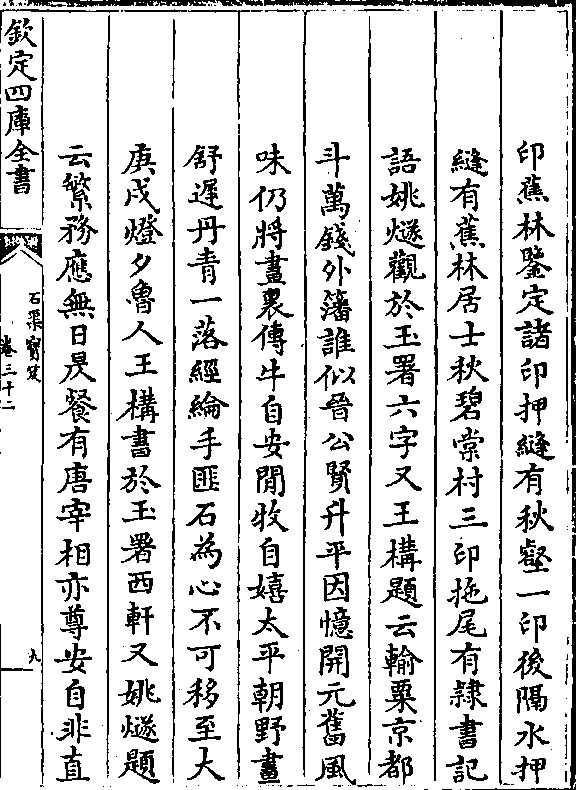 印蕉林鑒定諸印押縫有秋壑一印後隔水押
縫有蕉林居士秋碧棠村三印拖尾有隷書記
語姚燧觀於玉署六字又王構題云輸粟京都
斗萬錢外藩誰似晉公賢升平因憶開元舊風
味仍將畫裏傳牛自安閒牧自嬉太平朝野畫
舒遲丹青一落經綸手匪石為心不可移至大
庚戌燈夕魯人王構書於玉署西軒又姚燧題
云繁務應無日昃餐有唐宰相亦尊安自非直
欽定四庫全書
石渠寳笈
卷三十二
九